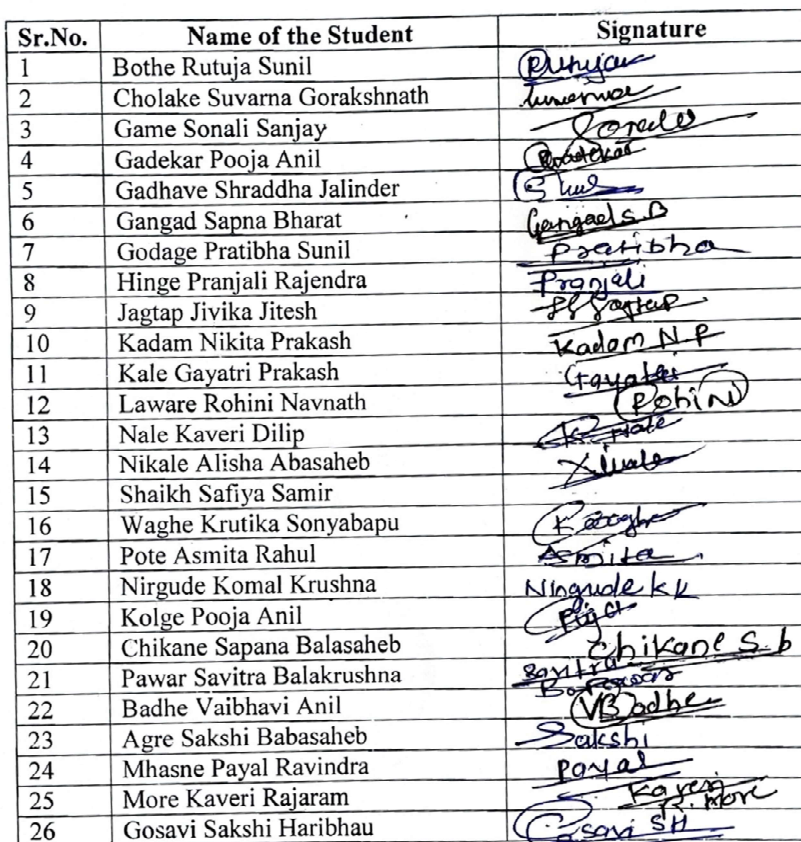 Sr.No. Name of the Student Signature
1 Bothe Rutuja Sunil Rutuja
2 Cholake Suvarna Gorakshnath
3 Game Sonali Sanjay
4 Gadekar Pooja Anil Gadekar
5 Gadhave Shraddha Jalinder
6 Gangad Sapna Bharat Gangad S B
7 Godage Pratibha Sunil Pratibha
8 Hinge Pranjali Rajendra Pranjali
9 Jagtap Jivika Jitesh
10 Kadam Nikita Prakash Kadam N P
11 Kale Gayatri Prakash Gayatri
12 Laware Rohini Navnath Rohini
13 Nale Kaveri Dilip
14 Nikale Alisha Abasaheb
15 Shaikh Safiya Samir
16 Waghe Krutika Sonyabapu
17 Pote Asmita Rahul Asmita
18 Nirgude Komal Krushna Nirgude k k
19 Kolge Pooja Anil
20 Chikane Sapana Balasaheb Chikane S. b
21 Pawar Savitra Balakrushna Savitra
22 Badhe Vaibhavi Anil VBadhe
23 Agre Sakshi Babasaheb Sakshi
24 Mhasne Payal Ravindra Payal
25 More Kaveri Rajaram Kaveri R. More
26 Gosavi Sakshi Haribhau Gosavi SH